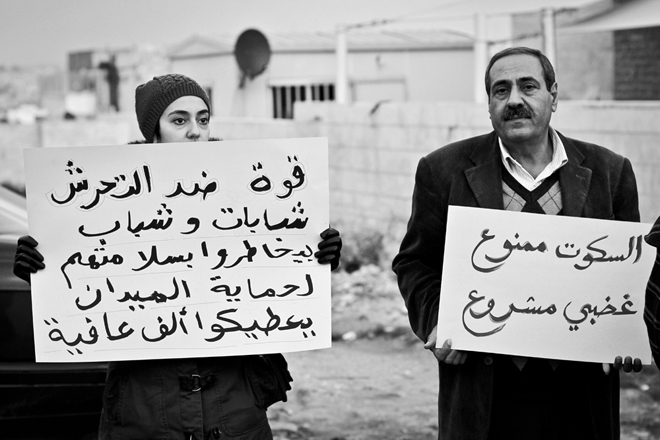 قوة ضد التحرش
شابات و شباب
بيخاطروا بسلامتهم
لحماية الميدان
بيعطيكوا ألف عافية
السكوت ممنوع
غضبي مشروع